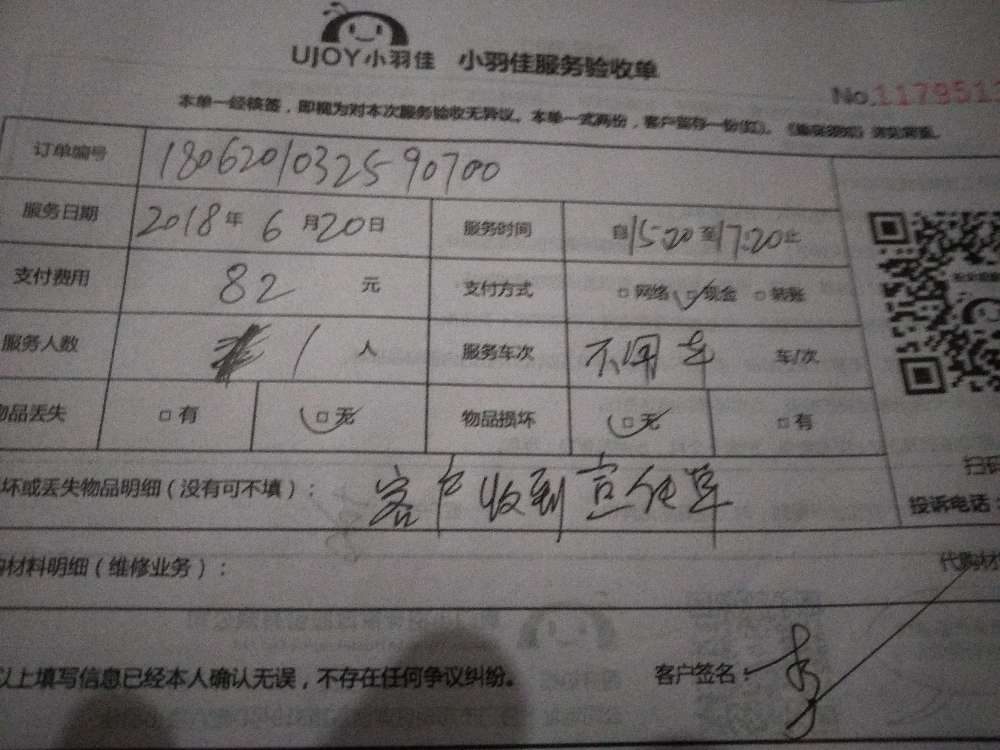 UJOY小羽佳 小羽佳服务验收单
No.117951
本单一经核签，即视为对本次服务验收无异议。本单一式两份，客户留存一份(红)。
订单编号 180620103259 0700
服务日期 2018年 6月20日 服务时间 自15:20至17:20止
支付费用 82 元 支付方式 □网络 □现金 □转账
服务人数 1 人 服务车次 不用车 车/次
物品丢失 □有 □无 物品损坏 □无 □有
坏或丢失物品明细（没有可不填）： 客户收到宣传单
扫码
投诉电话：
材料明细（维修业务）： 代购材
以上填写信息已经本人确认无误，不存在任何争议纠纷。 客户签名：